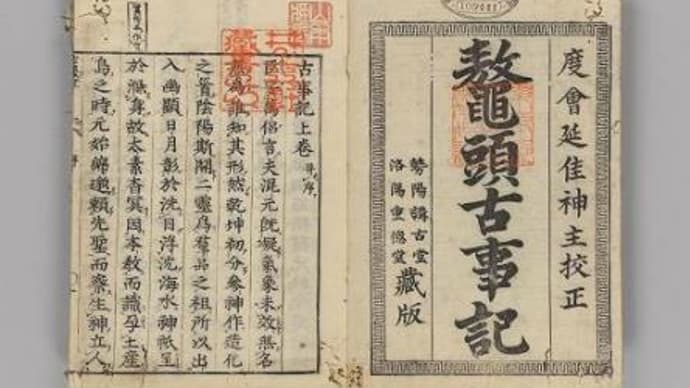 度會延佳神主校正
鼇頭古事記
勢陽講古堂
洛陽重德堂
藏版
古事記上卷 并序
臣安萬侶言夫混元既凝氣象未效無名
無爲誰知其形然乾坤初分參神作造化
之首陰陽斯開二靈爲羣品之祖所以出
入幽顯日月彰於洗目浮沈海水神祇呈
於滌身故太素杳冥因本教而識孕土産
嶋之時元始綿邈頼先聖而察生神立人